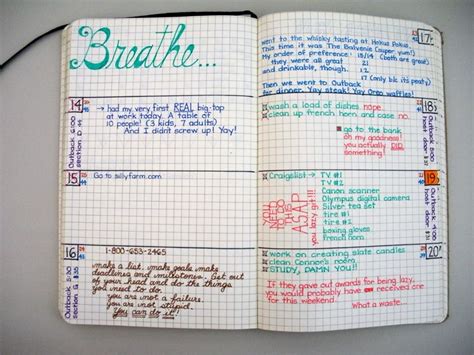 Breathe...
14
had my very first REAL big-top
at work today. A table of
10 people! (3 kids, 7 adults)
And I didn't screw up! Yay!
Outback 5:00
section D 44
15
Go to sillyfarm.com.
16
1-800-653-2465
make a list. make goals. make
deadlines and milestones. Get out
of your head and do the things
you need to do.
you are not a failure.
you are not stupid.
You can do it!
Outback 5:30
section G $35
17
went to the whisky tasting at Hokus Pokus.
This time it was The Balvenie (super yum!)
My order of preference: 15/14 (both are great)
they were all great
and drinkable, though. 12
17 (only bc its peaty)
Then we went to Outback
for dinner. Yay steak! Yay Oreo waffles!
18
wash a load of dishes nope.
clean up french horn and case no.
go to the bank
oh my goodness!
you actually DID
something!
Outback 5:00
host door
19
Craigslist → TV #1
TV #2
Canon scanner
Olympus digital camera
Silver tea set
tire
boxing gloves
french horn
YOU NEED TO DO THIS
ASAP
you lazy git!!!
host door
20
work on creating slate candles
clean Connor's room
STUDY, DAMN YOU!!
If they gave out awards for being lazy,
you would probably have received one
for this weekend.
What a waste...